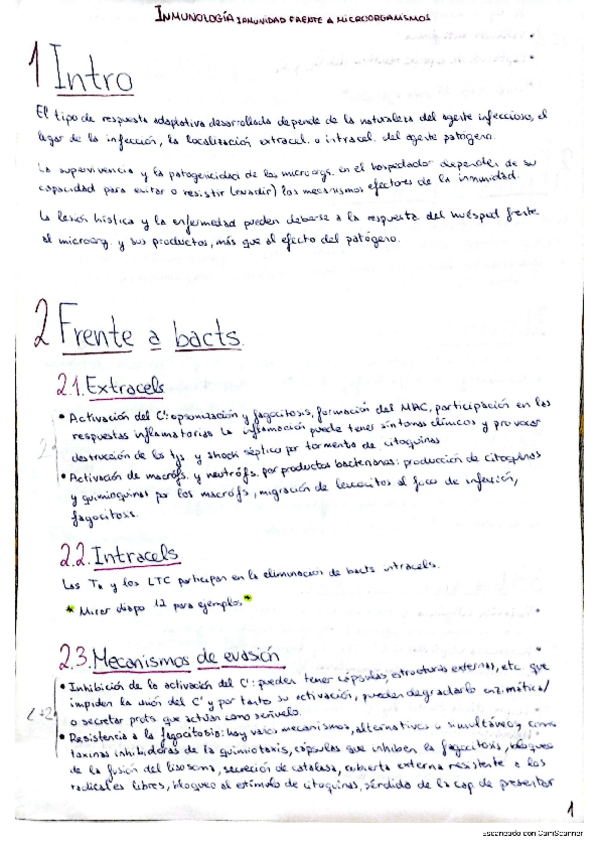 INMUNOLOGÍA INMUNIDAD FRENTE A MICROORGANISMOS
1 Intro
El tipo de respuesta adaptativa desarrollada depende de la naturaleza del agente infeccioso, el
lugar de la infección, la localización extracel. o intracel. del agente patógeno.
La supervivencia y la patogenicidad de los microorgs. en el hospedador dependen de su
capacidad para evitar o resistir (evadir) los mecanismos efectores de la inmunidad.
La lesión hística y la enfermedad pueden deberse a la respuesta del huésped frente
al microorg. y sus productos, más que al efecto del patógeno.
2 Frente a bacts.
2.1. Extracels
• Activación del C': opsonización y fagocitosis, formación del MAC, participación en las
respuestas inflamatorias. La inflamación puede tener síntomas clínicos y provocar
destrucción de los tjs y shock séptico por tormenta de citoquinas
• Activación de macrófs. y neutrófs. por productos bacterianos: producción de citoquinas
y quimioquinas por los macrófs, migración de leucocitos al foco de infección,
fagocitosis.
2.2. Intracels
Los y los LTC participan en la eliminación de bacts intracels.
* Mirar diapo 12 para ejemplos *
2.3. Mecanismos de evasión
• Inhibición de la activación del C': pueden tener cápsulas, estructuras externas, etc. que
impiden la unión del C' y por tanto su activación, pueden degradarlo enzimática/
o secretar prots que actúan como señuelo.
• Resistencia a la fagocitosis: hay varios mecanismos, alternativos o simultáneos, como
toxinas inhibidoras de la quimiotaxis, cápsulas que inhiben la fagocitosis, bloqueo
de la fusión del lisosoma, secreción de catalasa, cubierta externa resistente a los
radicales libres, bloqueo al estímulo de citoquinas, pérdida de la cap de presentar
1
Escaneado con CamScanner